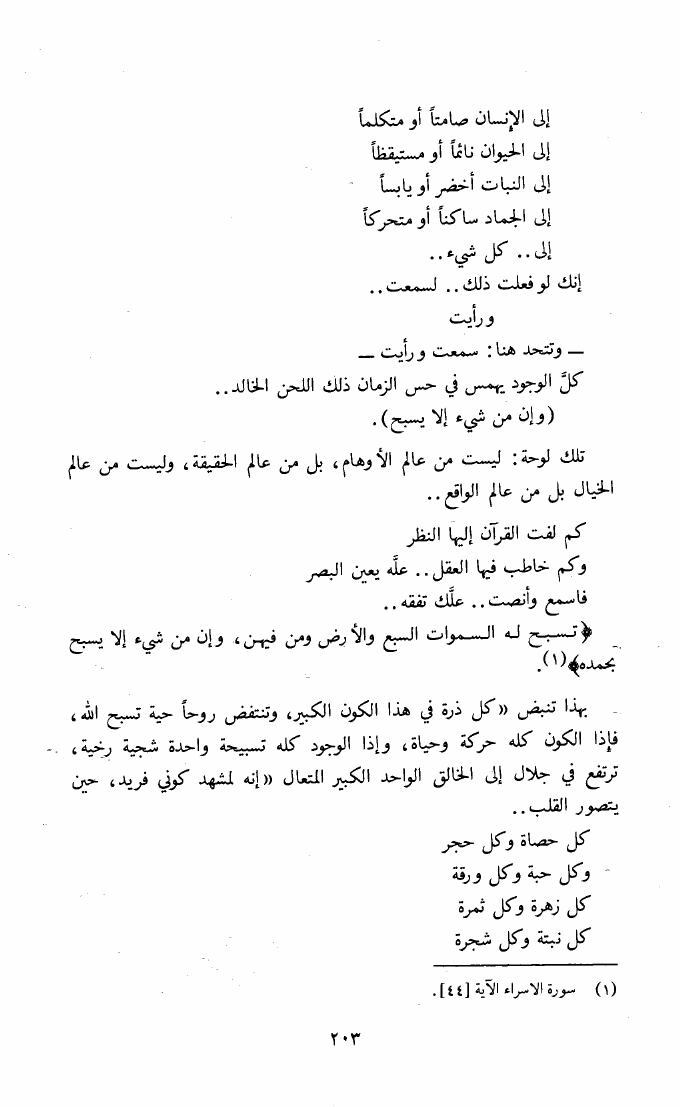 إلى الإنسان صامتاً أو متكلماً
إلى الحيوان نائماً أو مستيقظاً
إلى النبات أخضر أو يابساً
إلى الجماد ساكناً أو متحركاً
إلى.. كل شيء..
إنك لو فعلت ذلك.. لسمعت..
ورأيت
ــ وتتحد هنا: سمعت ورأيت ــ
كلَّ الوجود يهمس في حس الزمان ذلك اللحن الخالد..
(وإن من شيء إلا يسبح).
تلك لوحة: ليست من عالم الأوهام، بل من عالم الحقيقة، وليست من عالم
الخيال بل من عالم الواقع..
كم لفت القرآن إليها النظر
وكم خاطب فيها العقل.. علَّه يعين البصر
فاسمع وأنصت.. علَّك تفقه..
﴿تسبح له السموات السبع والأرض ومن فيهن، وإن من شيء إلا يسبح
بحمده﴾(١).
بهذا تنبض «كل ذرة في هذا الكون الكبير، وتنتفض روحاً حية تسبح الله،
فإذا الكون كله حركة وحياة، وإذا الوجود كله تسبيحة واحدة شجية رخية،
ترتفع في جلال إلى الخالق الواحد الكبير المتعال «إنه لمشهد كوني فريد، حين
يتصور القلب..
كل حصاة وكل حجر
وكل حبة وكل ورقة
كل زهرة وكل ثمرة
كل نبتة وكل شجرة
(١) سورة الاسراء الآية [٤٤].
٢٠٣